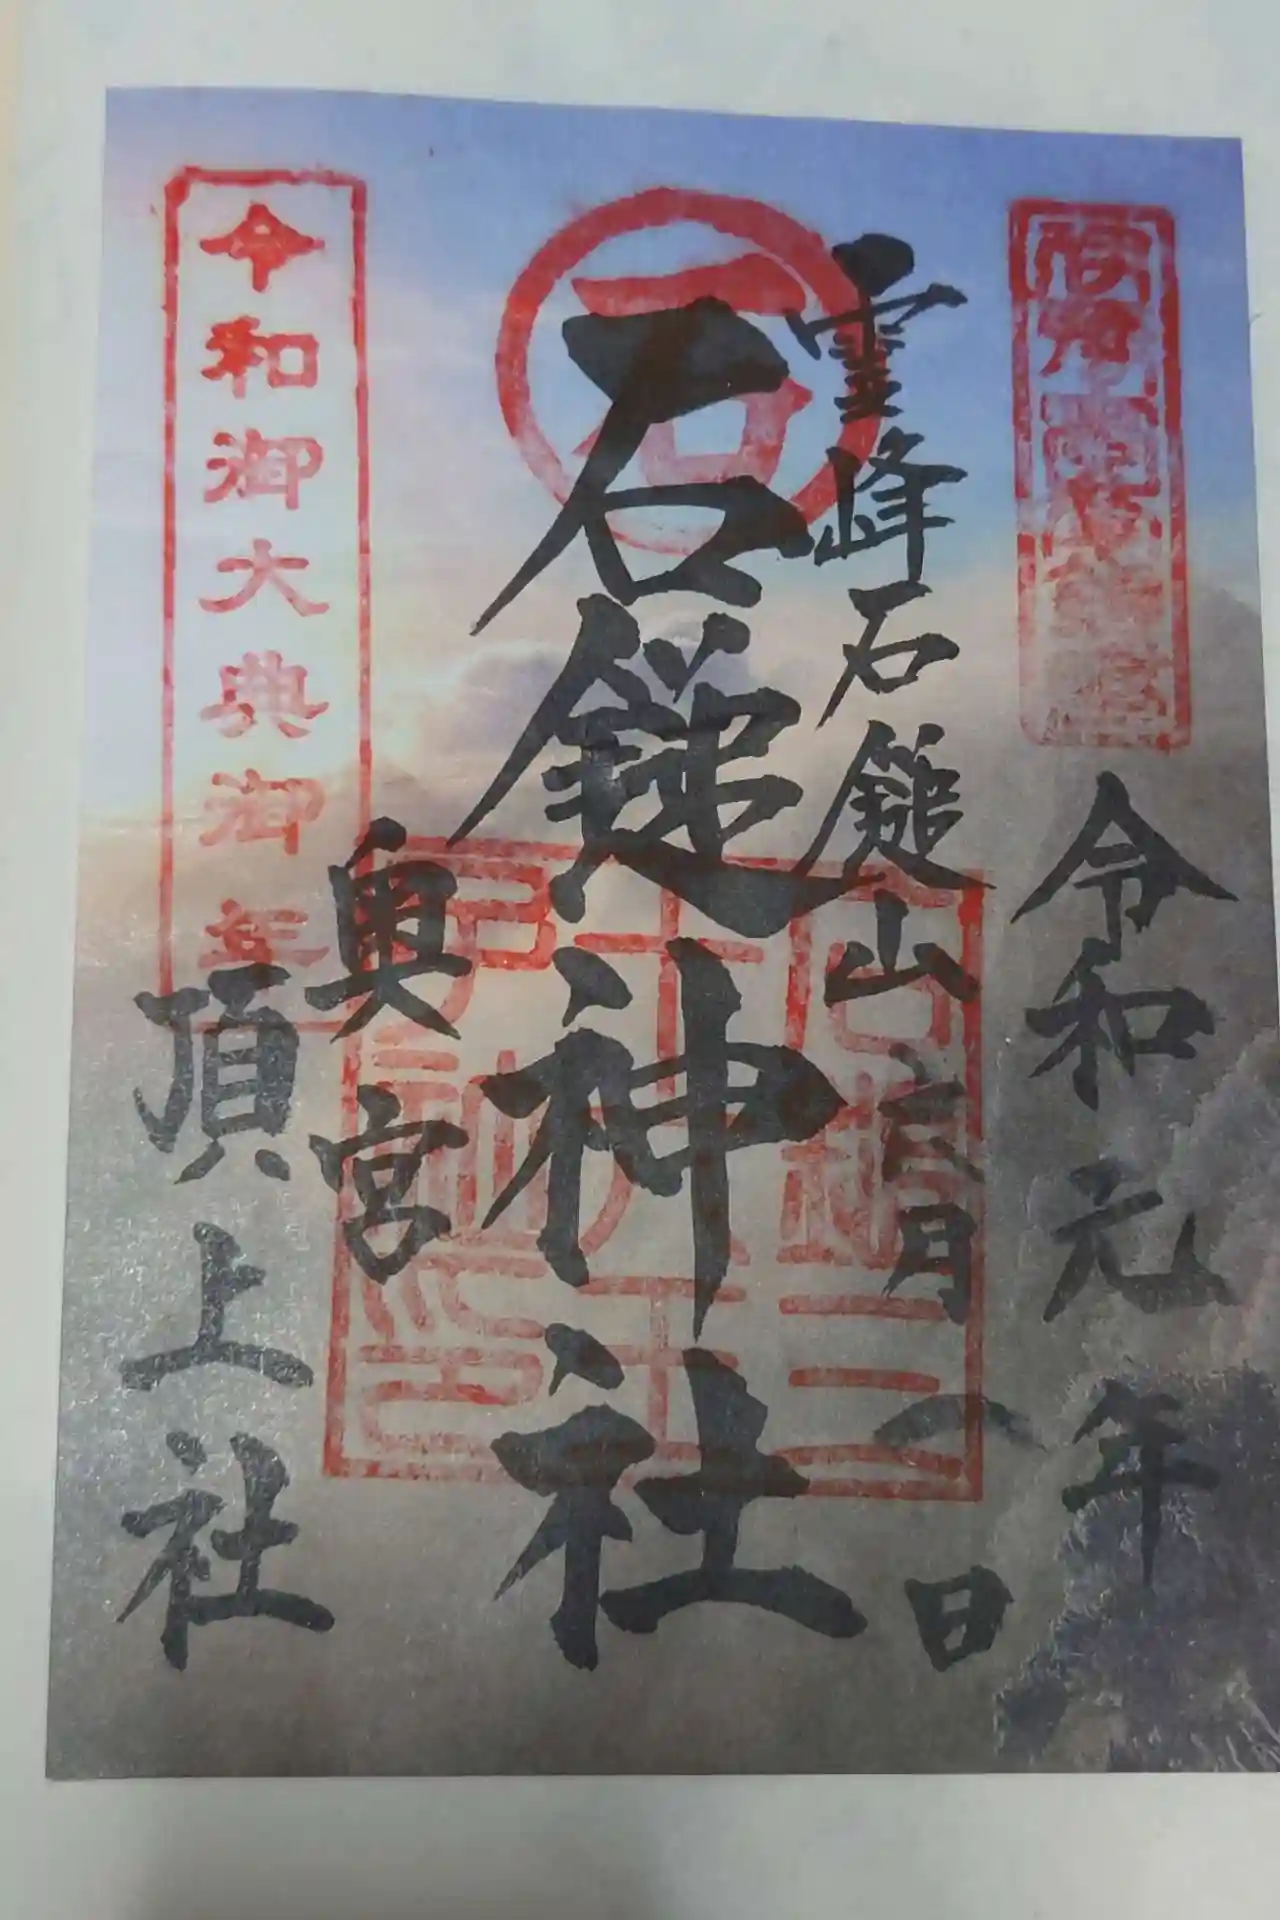 令和元年
霊峰石鎚山
月
八日
石
石鎚神社
奥宮
頂上社
令和御大典御年